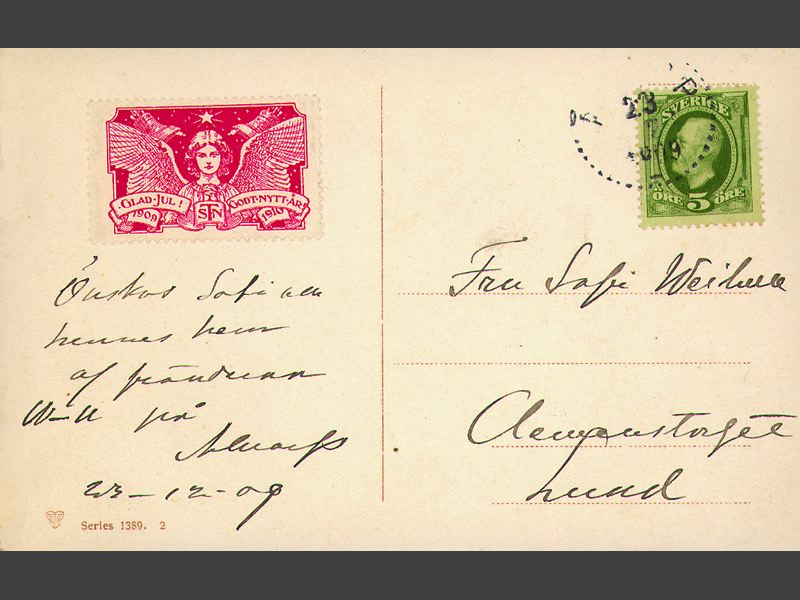 GLAD·JUL!
1909
STN
GODT·NYTT·ÅR
1910
SVERIGE
ÖRE 5 ÖRE
23
Önskas Sofi och
hennes hem
af fränderna
W-ll på
Alnarp
23-12-09
Fru Sofi
Clemenstorget
Lund
Series 1389. 2